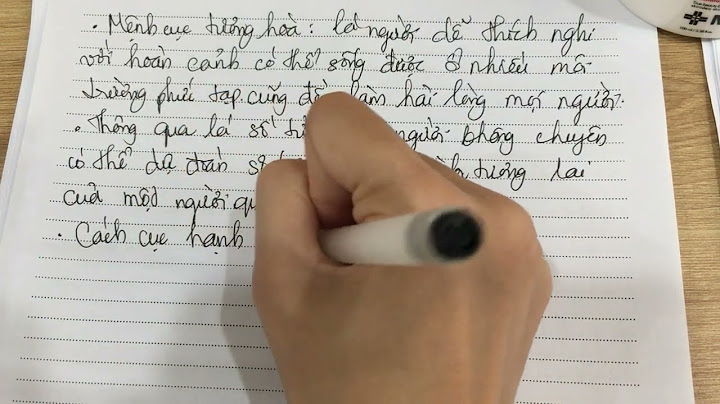 . Mệnh cục tương hoà : là người dễ thích nghi
với hoàn cảnh có thể sống được ở nhiều môi
trường phức tạp cũng làm hài lòng mọi người.
. Thông qua lá số người không chuyên
có thể dự đoán tương lai
của một người
. Cách cục hạnh